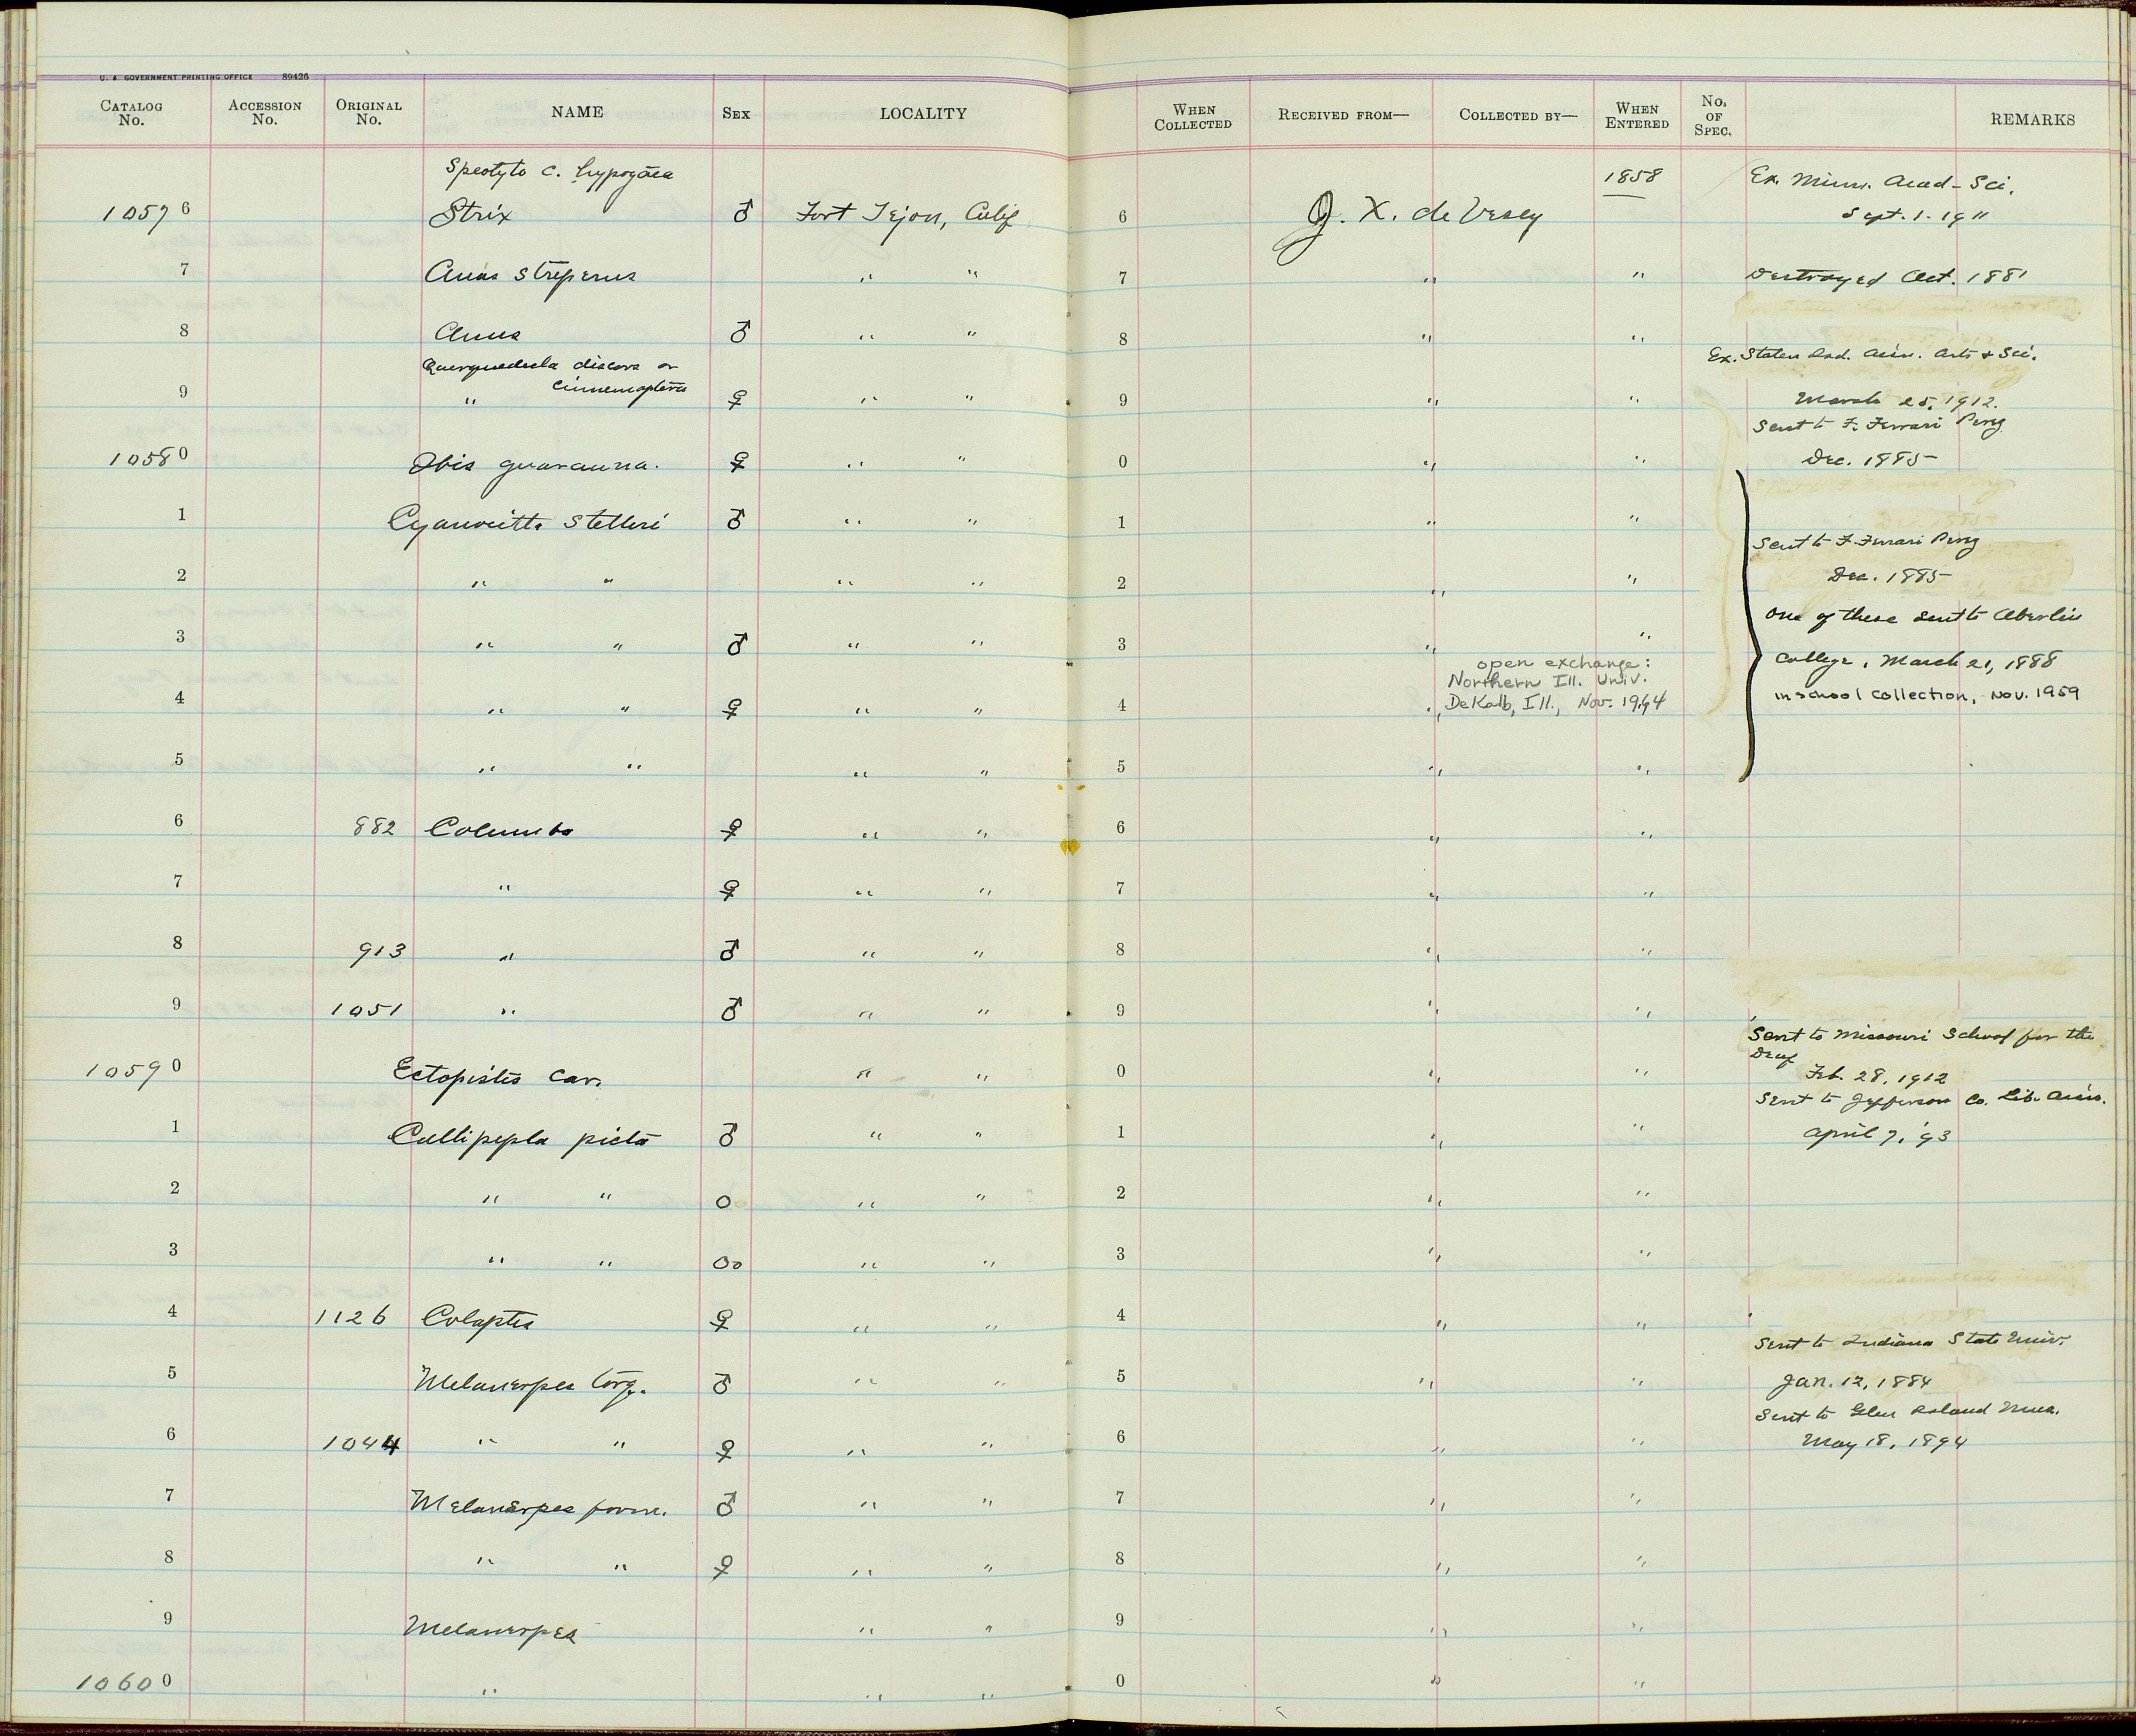 U. S. GOVERNMENT PRINTING OFFICE 89426
CATALOG No. ACCESSION No. ORIGINAL No. NAME SEX LOCALITY WHEN COLLECTED RECEIVED FROM— COLLECTED BY— WHEN ENTERED No. OF SPEC. REMARKS
Speotyto c. hypogaea 1858 Ex. Minn. Acad-Sci.
10576 Strix ♂ Fort Tejon, Calif 6 J. X. de Vesey Sept. 1. 1911
7 Anas streperus " " 7 " " Destroyed Oct. 1881
8 Anas ♂ " " 8 " "
Querquedula discors or Ex. Staten Isd. Assn. Arts & Sci.
cinnamoptera
9 " ♀ " " 9 " " March 25, 1912.
Sent to F. Ferrari Perez
10580 Ibis guarauna. ♀ " " 0 " " Dec. 1885
1 Cyanocitta stelleri ♂ " " 1 " "
Sent to F. Ferrari Perez
2 " " " " 2 " " Dec. 1885
One of these sent to Oberlin
3 " " ♂ " " 3 " "
open exchange: College, March 21, 1888
Northern Ill. Univ.
4 " " ♀ " " 4 " DeKalb, Ill., Nov. 1964 in school collection, Nov. 1959
5 " " " " 5 " "
6 882 Columba ♀ " " 6 " "
7 " ♀ " " 7 " "
8 913 " ♂ " " 8 " "
9 1051 " ♂ " " 9 " "
Sent to Missouri School for the
Deaf
10590 Ectopistes car. " " 0 " " Feb. 28, 1912
Sent to Jefferson Co. Lib. Assn.
1 Callipepla picta ♂ " " 1 " " April 7, '93
2 " " O " " 2 " "
3 " " Oo " " 3 " "
4 1126 Colaptes ♀ " " 4 " "
Sent to Indiana State Univ.
5 Melanerpes torq. ♂ " " 5 " " Jan. 12, 1884
Sent to Glen Island Mus.
6 1044 " " ♀ " " 6 " " May 18, 1894
7 Melanerpes form. ♂ " " 7 " "
8 " " ♀ " " 8 " "
9 Melanerpes " " 9 " "
10600 " " " 0 " "